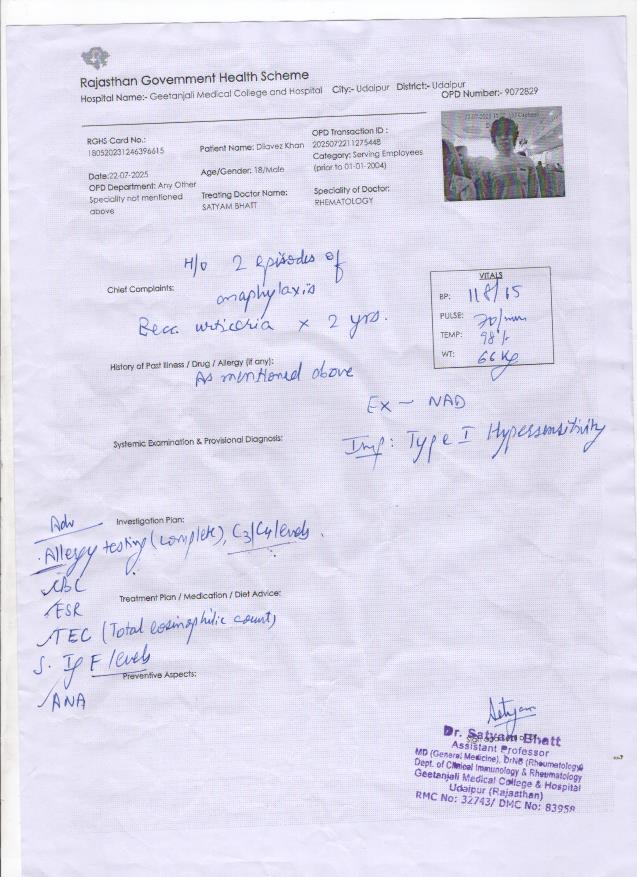 Rajasthan Government Health Scheme
Hospital Name:- Geetanjali Medical College and Hospital City:- Udaipur District:- Udaipur
OPD Number:- 9072829
RGHS Card No.:
180520231246396615
Patient Name: Dilavez Khan
OPD Transaction ID :
2025072211275448
Date:22-07-2025
Age/Gender: 18/Male
Category: Serving Employees
(prior to 01-01-2004)
OPD Department: Any Other
Speciality not mentioned
above
Treating Doctor Name:
SATYAM BHATT
Speciality of Doctor:
RHEMATOLOGY
H/o 2 episodes of
Chief Complaints:
anaphylaxis
urticaria x 2 yrs.
VITALS
BP: 118/65
PULSE: 70/min
TEMP: 98%
WT: 66 Kg
History of Past Illness / Drug / Allergy (if any):
As mentioned above
Ex - NAD
Systemic Examination & Provisional Diagnosis:
Imp: Type I Hypersensitivity
Adv
Investigation Plan:
Allergy testing (complete), C3/C4 levels.
CBC
Treatment Plan / Medication / Diet Advice:
ESR
TEC (Total eosinophilic count)
S. Ig E levels
Preventive Aspects:
ANA
Satyam
Dr. Satyam Bhatt
Assistant Professor
MD (General Medicine), DrNB (Rheumatology)
Dept. of Clinical Immunology & Rheumatology
Geetanjali Medical College & Hospital
Udaipur (Rajasthan)
RMC No: 32743/ DMC No: 83958